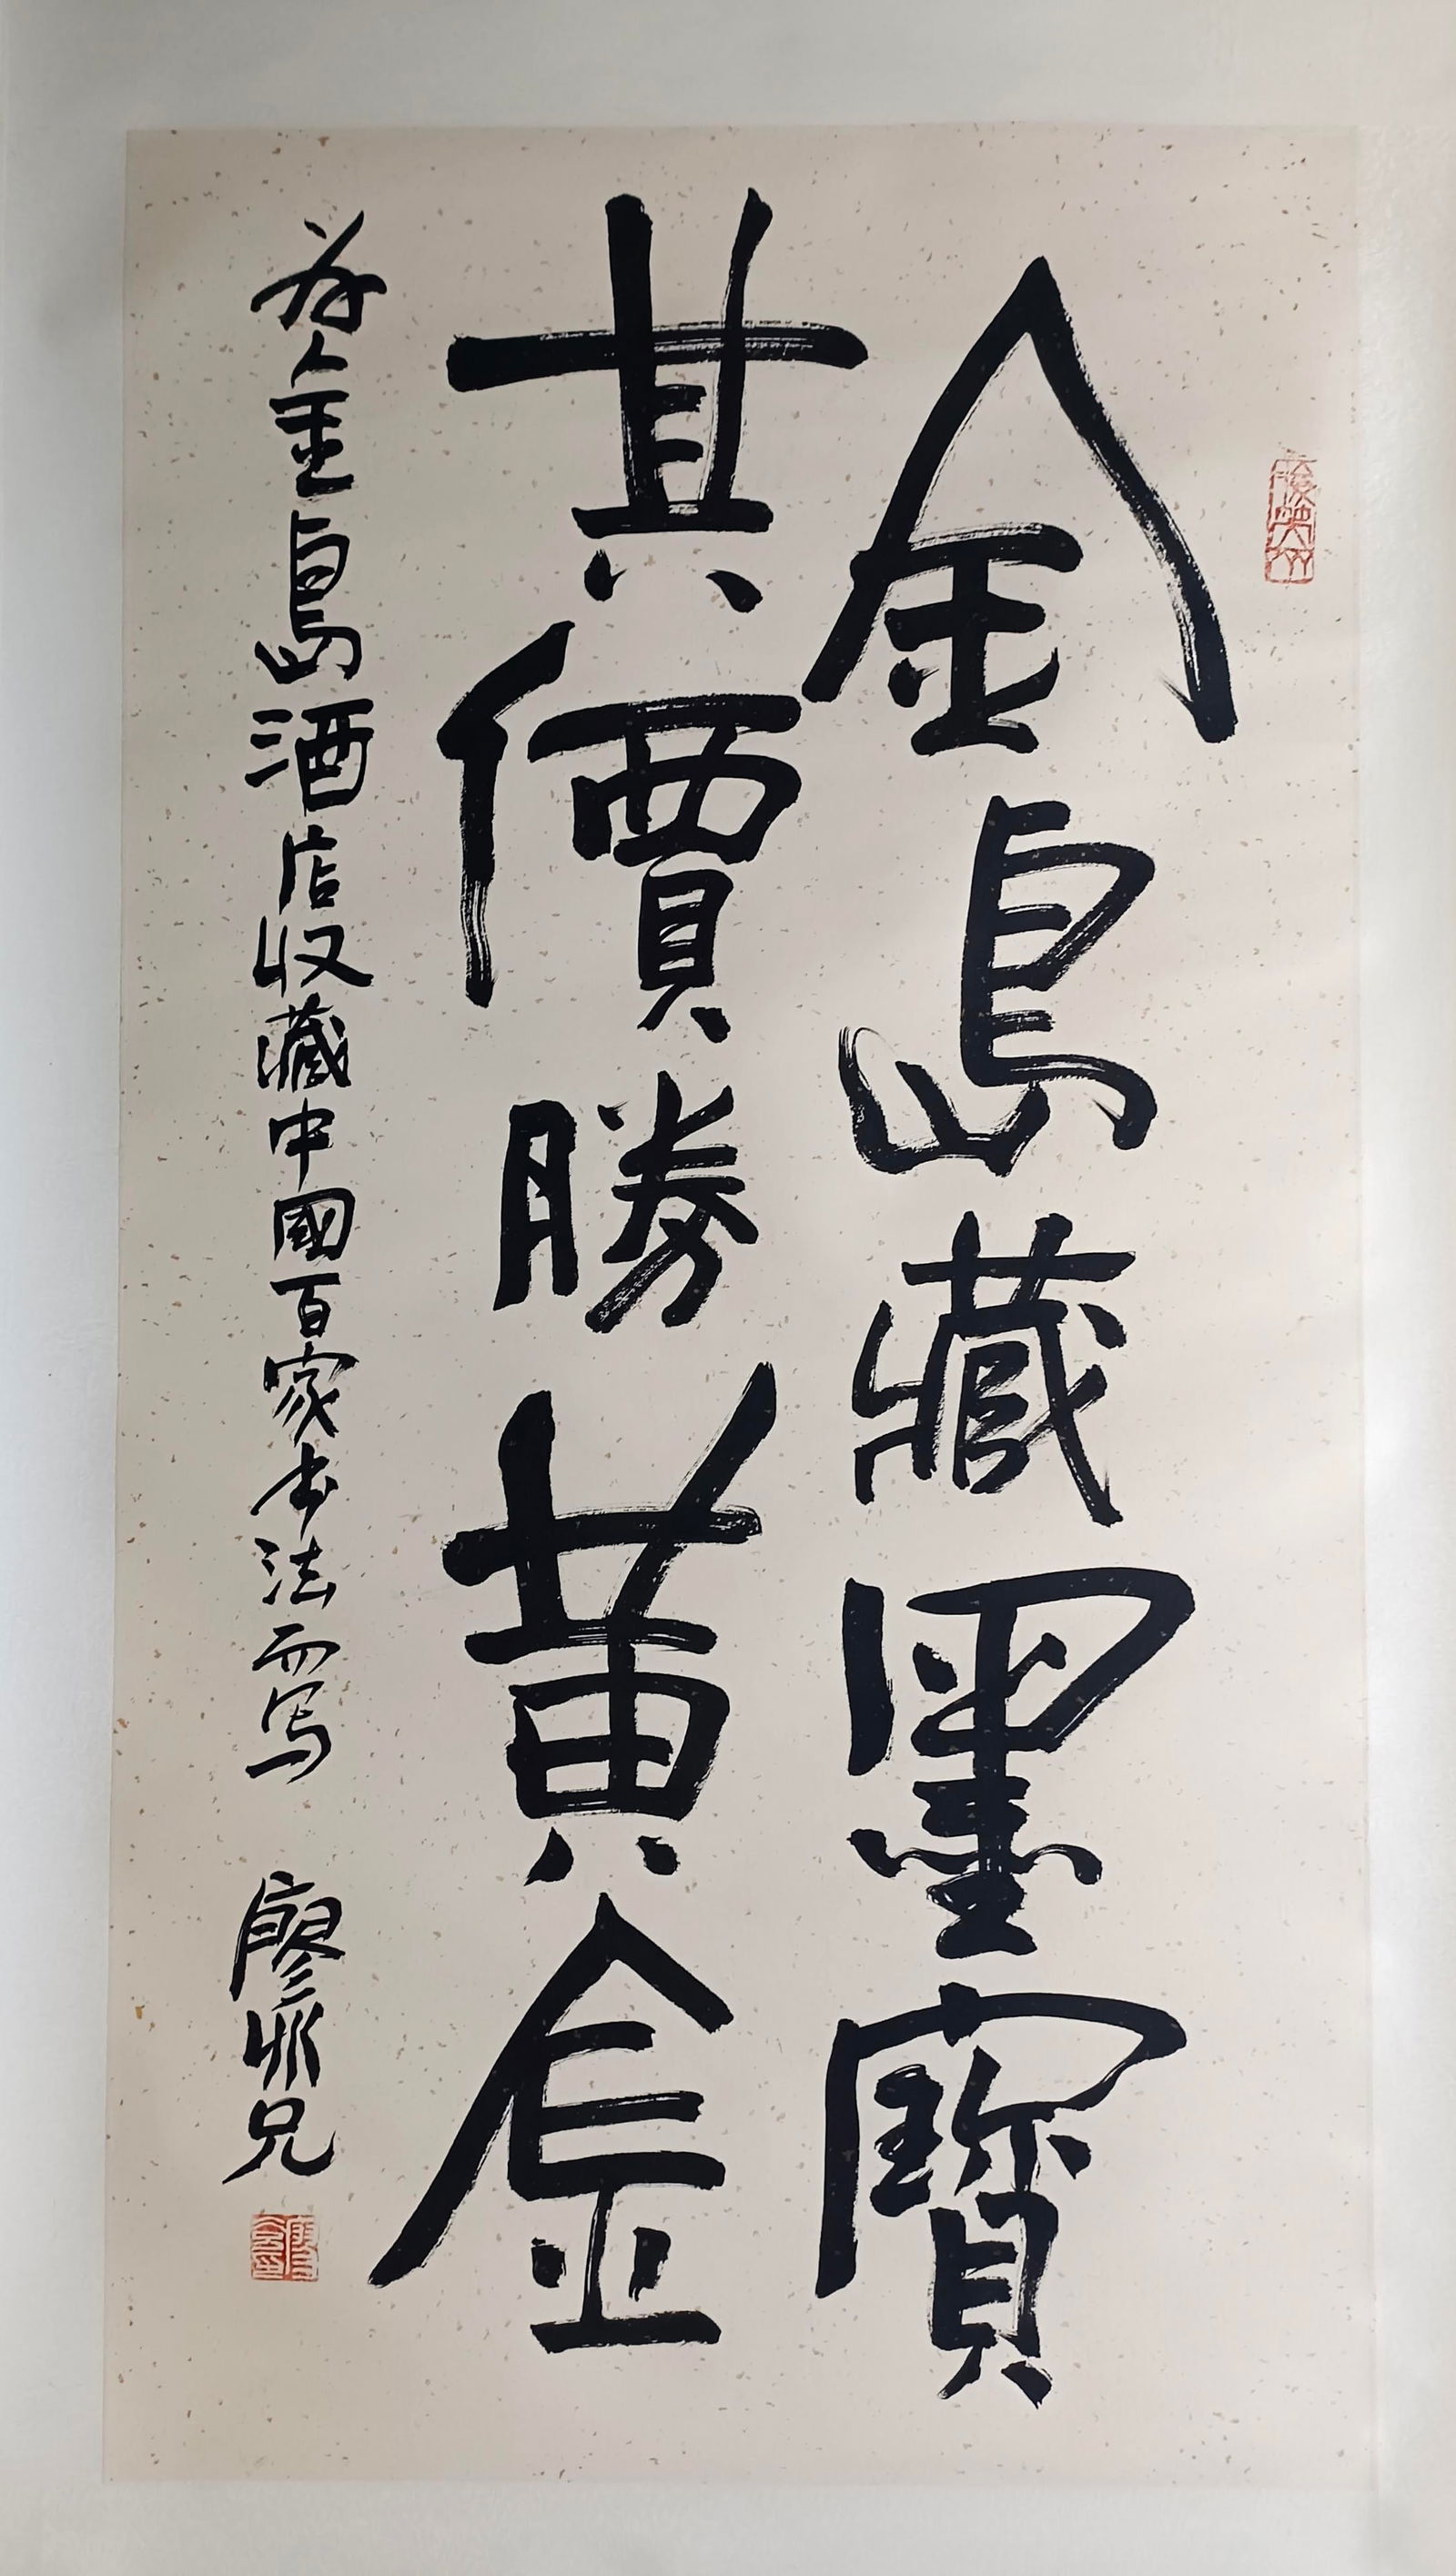 金島藏墨寶
其價勝黃金
为金島酒店收藏中國百家书法而写 廖冰兄